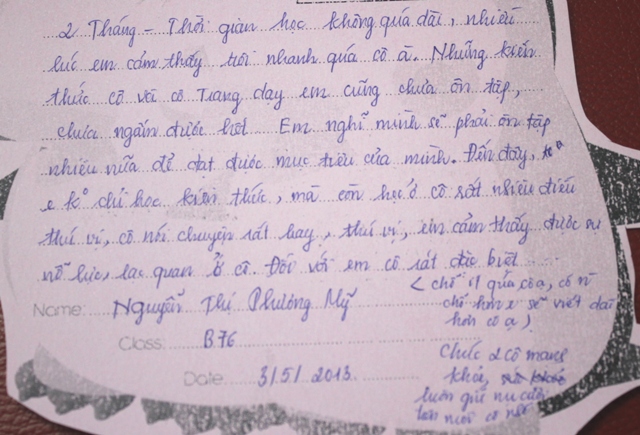 2 Tháng – Thời gian học không quá dài, nhiều
lúc em cảm thấy trôi nhanh quá cô à. Những kiến
thức cô và cô Trang dạy em cũng chưa ôn tập,
chưa ngấm được hết. Em nghĩ mình sẽ phải ôn tập
nhiều nữa để đạt được mục tiêu của mình. Đến đây,
e k° chỉ học kiến thức, mà còn học ở cô rất nhiều điều
thú vị, cô nói chuyện rất hay, thú vị, em cảm thấy được sự
nỗ lực, lạc quan ở cô. Đối với em cô rất đặc biệt
Name: Nguyễn Thị Phương Mỹ
Class: B76
Date 31/5/2013
( chỉ quá cô ạ, có
chỗ hơn e sẽ viết dài
hơn cô ạ )
Chúc 2 cô mạnh
khỏe,
luôn giữ nụ cười